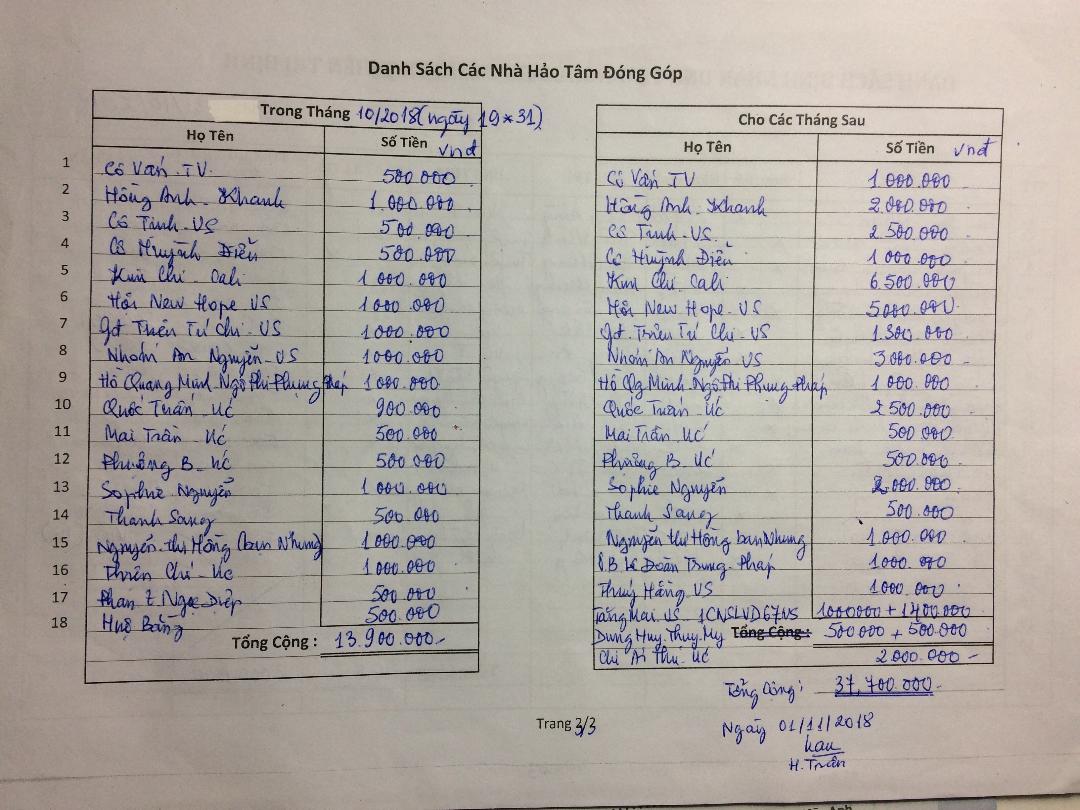 Danh Sách Các Nhà Hảo Tâm Đóng Góp
Trong Tháng 10/2018 (ngày 19*31)
Họ Tên Số Tiền vnđ
1 Cô Vấn. TV. 500.000
2 Hồng Anh. Khanh 1.000.000
3 Cô Tinh. US 500.000
4 Cô Huỳnh Diễn 500.000
5 Kim Chi. Cali 1000.000
6 Hội New Hope. US 1000.000
7 gđ Triều Tú Chi. US 1.000.000
8 Nhóm An Nguyễn. US 1000.000
9 Hồ Quang Minh. Ngô Thi Phụng Pháp 1000.000
10 Quốc Tuấn. Úc 900.000
11 Mai Trần. Úc 500.000
12 Phượng B. Úc 500.000
13 Sophie Nguyễn 1000.000
14 Thanh Sang 500.000
15 Nguyễn. thị Hồng (bạn Nhung) 1.000.000
16 Thiên Chí. Úc 1000.000
17 Phan t. Ngọc Diệp 500.000
18 Huệ Bằng 500.000
Tổng Cộng : 13.900.000.-
Cho Các Tháng Sau
Họ Tên Số Tiền vnđ
Cô Vấn TV 1.000.000
Hồng Anh. Khanh 2.000.000
Cô Tinh. US. 2.500.000
Cô Huỳnh Diễn 1.000.000
Kim Chi. Cali 6.500.000
Hội New Hope. US 5000.000
gđ. Triều Tú Chi. US 1.300.000
Nhóm An Nguyễn. US 3.000.000
Hồ Qg Minh. Ngô Thi Phụng Pháp 1000.000
Quốc Tuấn. Úc 2.500.000
Mai Trần. Úc 500.000
Phượng B. Úc 500.000
Sophie Nguyễn 2.000.000
Thanh Sang 500.000
Nguyễn thị Hồng bạn Nhung 1.000.000
Lê Đoàn Trung. Pháp 1000.000
Thúy Hằng. US 1000.000
Tăng Mai. US 1CNSLVD67US 1000000 + 1400.000
Dung Huy. Thuy. My Tổng Cộng : 500.000 + 500.000
Chi Ai Thu. Úc 2.000.000 -
Tổng Cộng: 37,700.000.-
Trang 3/3
Ngày 01/11/2018
H. Trân